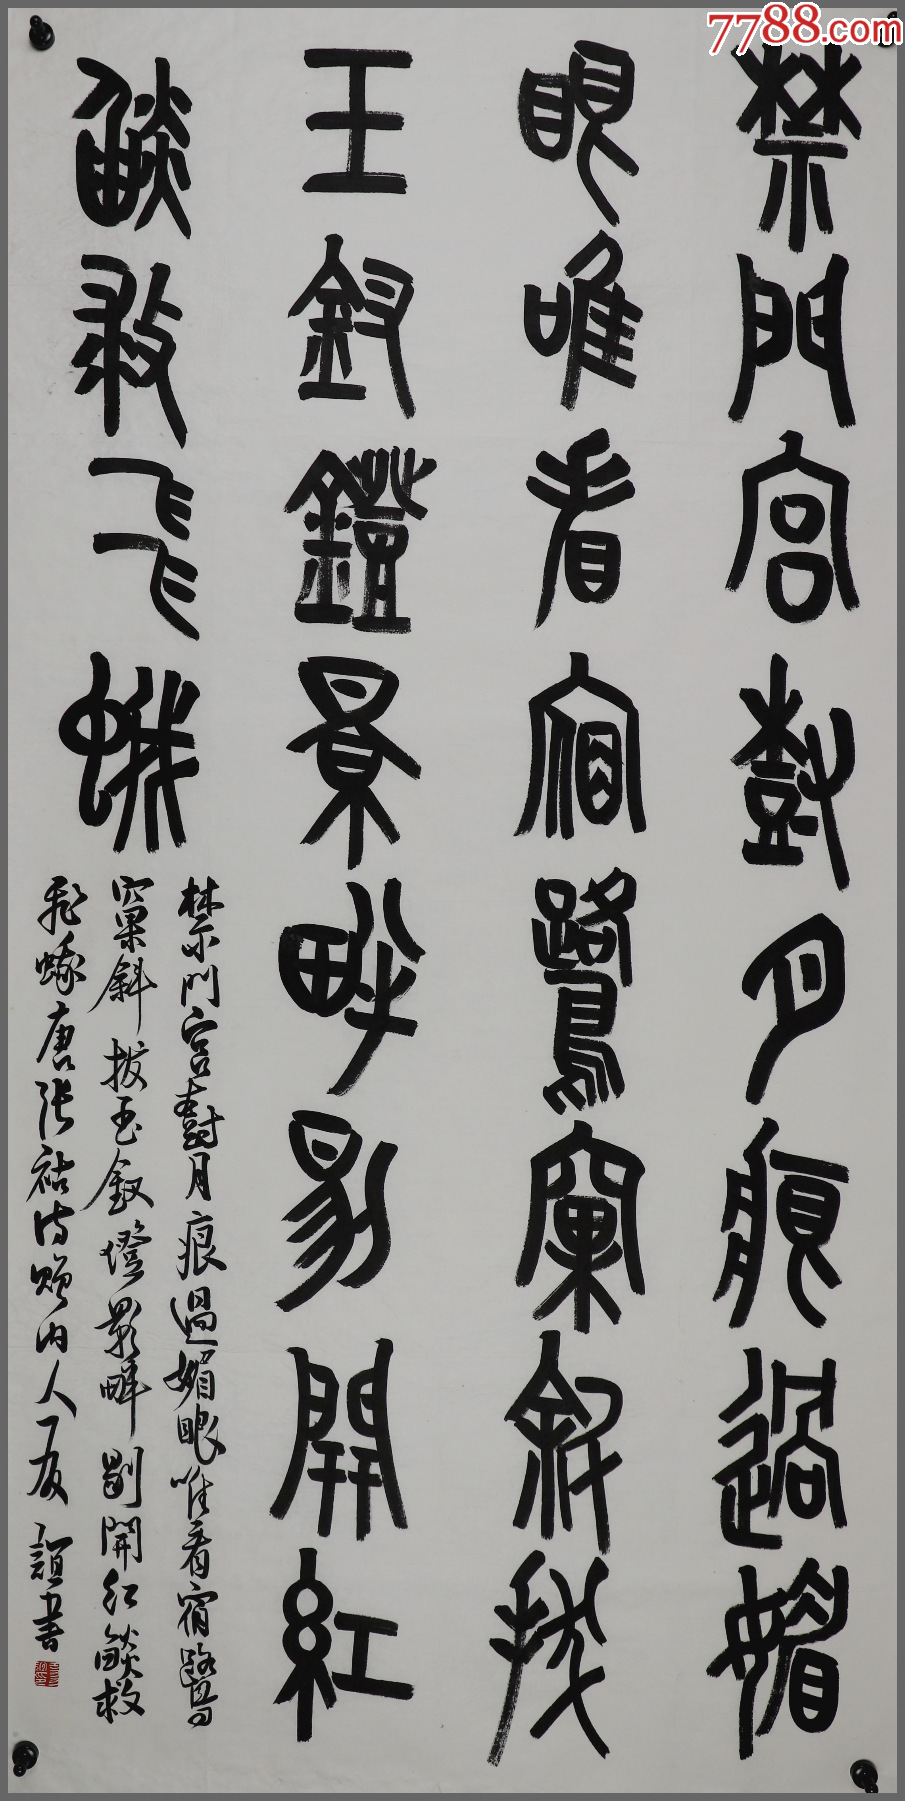 7788.com
禁門宮樹月痕過媚
眼唯看宿鷺窠斜拔
玉釵鐙景畔剔開紅
燄救飛蛾
禁門宮樹月痕過媚眼唯看宿鷺
窠斜拔玉釵燈影畔剔開紅燄救
飛蛾唐張祜詩贈內人一首 誼書